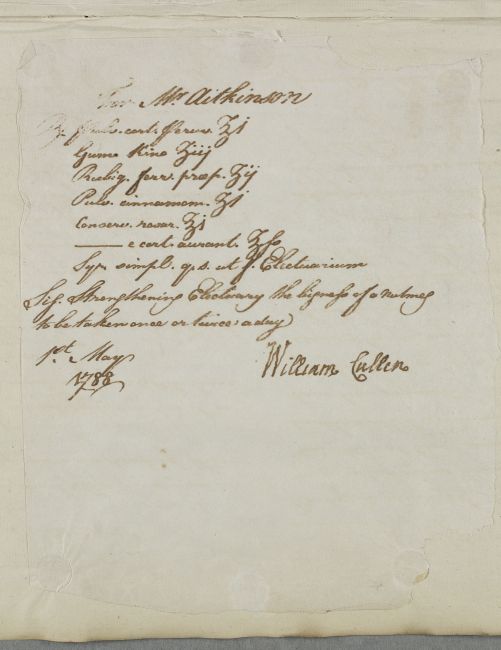 For Mr Aitkinson
℞ Pulv. cort. Peruv. ℥j
Gum. Kino ʒiij
Rubig. ferr. præp. ʒij
Pulv. cinnamom. ʒj
Conserv. rosar. ℥j
——— e cort. aurant. ℥ſs
Syr. simpl. q.s. ut f. Electuarium
Sig. Strengthening Electuary the bigneſs of a nutmeg
to be taken once or twice a day
1st. May William Cullen
1788